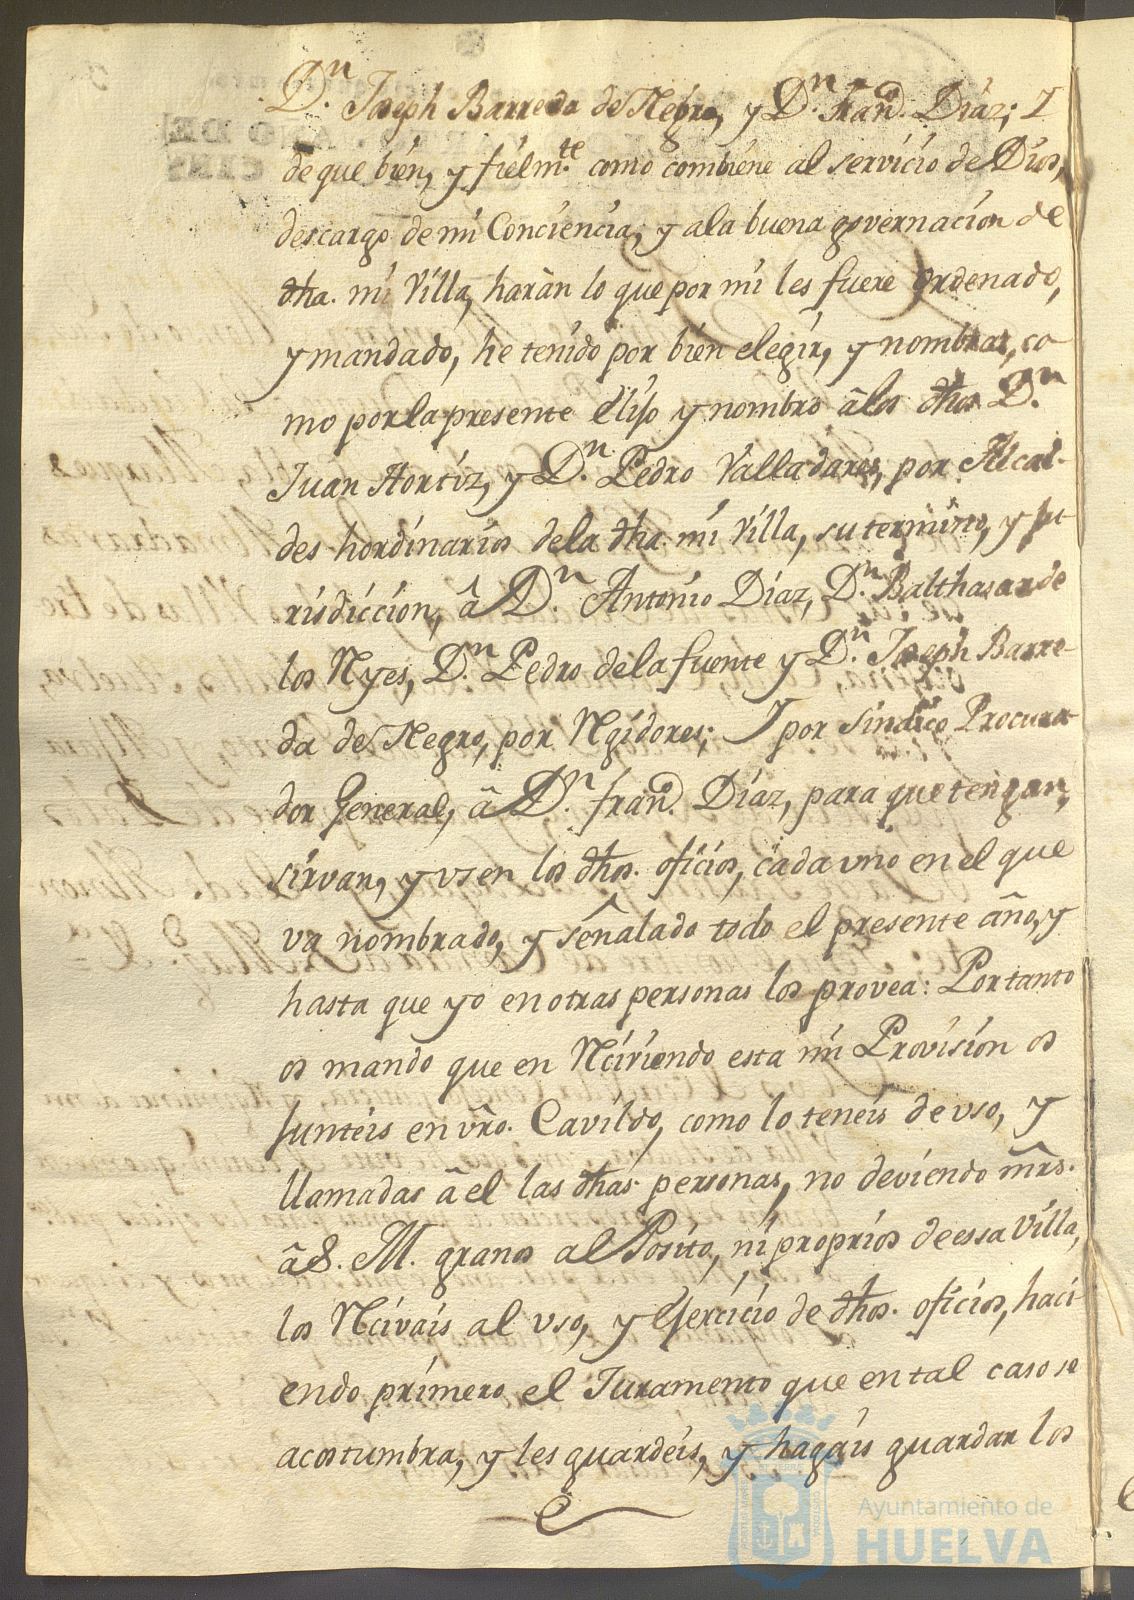 Dn. Joseph Barreda de Negro, y Dn. Franco. Díaz; I
de que bien, y fielmte. como combiene al servicio de Dios,
descargo de mi Conciencia, y ala buena governacion de
dha. mi Villa, haràn lo que por mi les fuere ordenado,
y mandado, he tenido por bien elegir, y nombrar, co
mo por la presente Elijo y nombro â los dhos Dn.
Juan Hortiz, y Dn. Pedro Valladares, por Alcal-
des hordinarios dela dha mi Villa, su termino, y Ju
risdiccion, â Dn. Antonio Diaz, Dn. Balthasar de
los Ryes, Dn. Pedro de la fuente y Dn. Joseph Barre-
da de Negro, por Rgidores; I por Sindico Procura
dor General, â Dn. Franco. Díaz, para que tengan,
sirvan, y usen los dhos. oficios, cada uno en el que
va nombrado, y señalado todo el presente año, y
hasta que yo en otras personas los provea: Por tanto
os mando que en Rciviendo esta mi Provision os
Junteis en vro. Cavildo, como lo teneis de uso, y
llamadas â el las dhas personas, no deviendo mrs.
â S. M. granos al Posito, ni proprios de essa Villa,
los Rcivais al uso, y Ejercicio de dhos. oficios, haci
endo primero el Juramento que en tal caso se
acostumbra, y les guardeis, y hagais guardar los
Ayuntamiento de
HUELVA